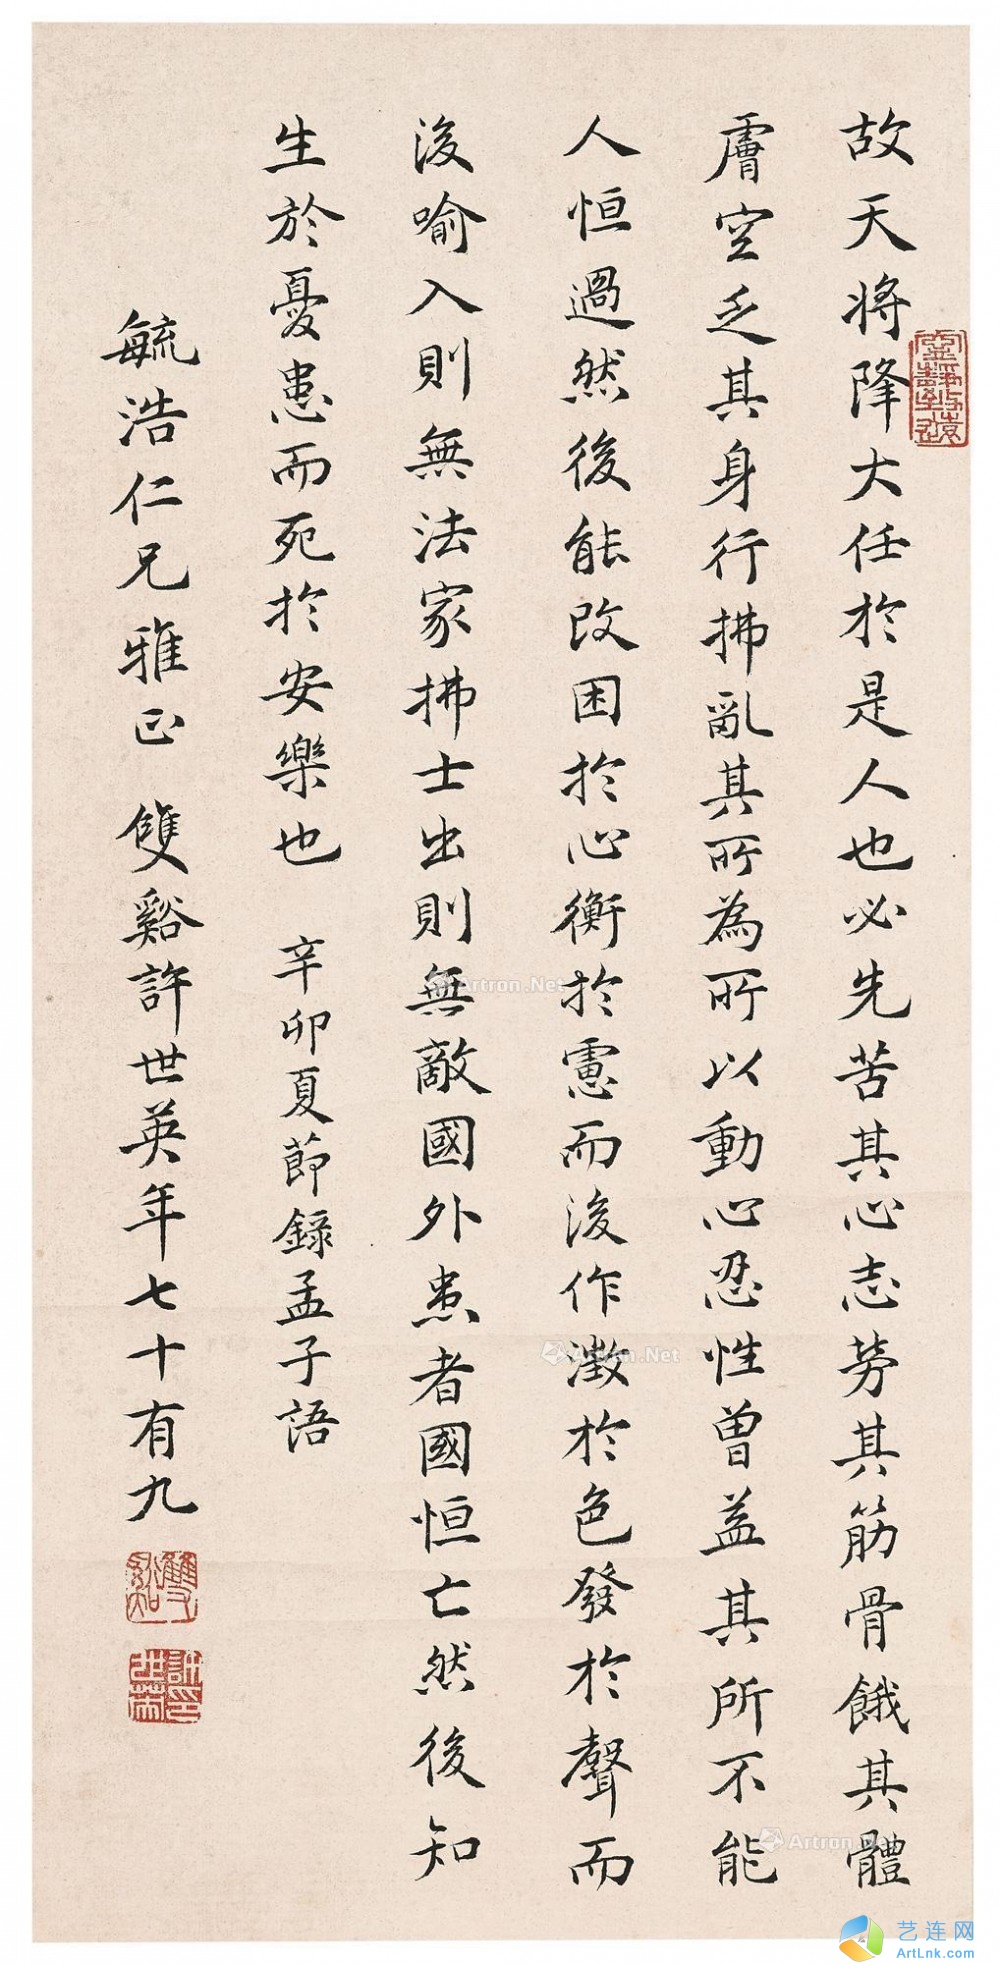 故天将降大任於是人也必先苦其心志勞其筋骨餓其體
膚空乏其身行拂亂其所為所以動心忍性曾益其所不能
人恒過然後能改困於心衡於慮而後作徵於色發於聲而
後喻入則無法家拂士出則無敵國外患者國恒亡然後知
生於憂患而死於安樂也 辛卯夏節錄孟子語
毓浩仁兄雅正 雙谿許世英年七十有九
寧靜致遠
雙谿
許世英印
Artron.Net
Artron.Net
Artron.Net
艺连网
ArtLnk.com